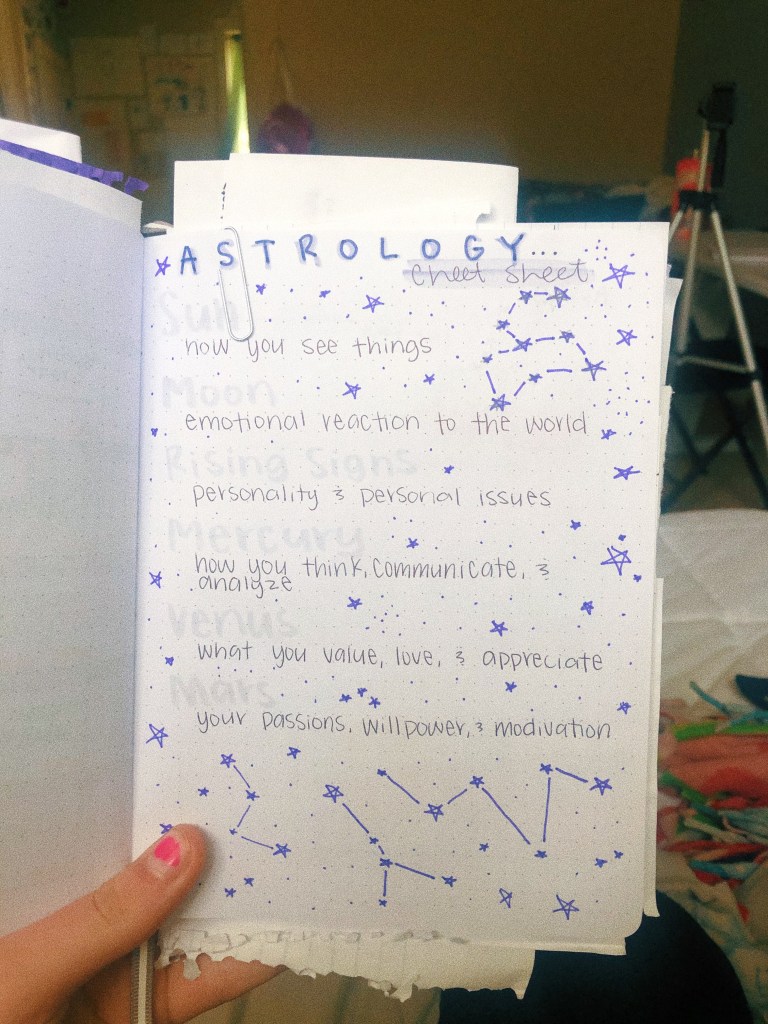 ASTROLOGY...
cheet sheet
Sun
how you see things
Moon
emotional reaction to the world
Rising Signs
personality & personal issues
Mercury
how you think, communicate, &
analyze
Venus
what you value, love, & appreciate
Mars
your passions, willpower, & modivation